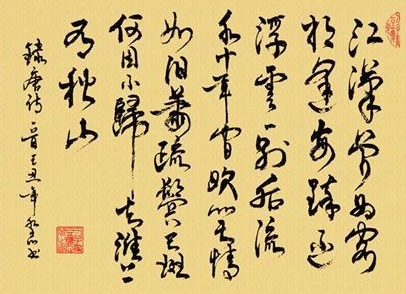 江漢曾為客
相逢每醉還
浮雲一別後流
水十年間歡笑情
如旧蕭疏鬢已斑
何因不歸去淮上
有秋山
錄唐詩一首 丑年 書